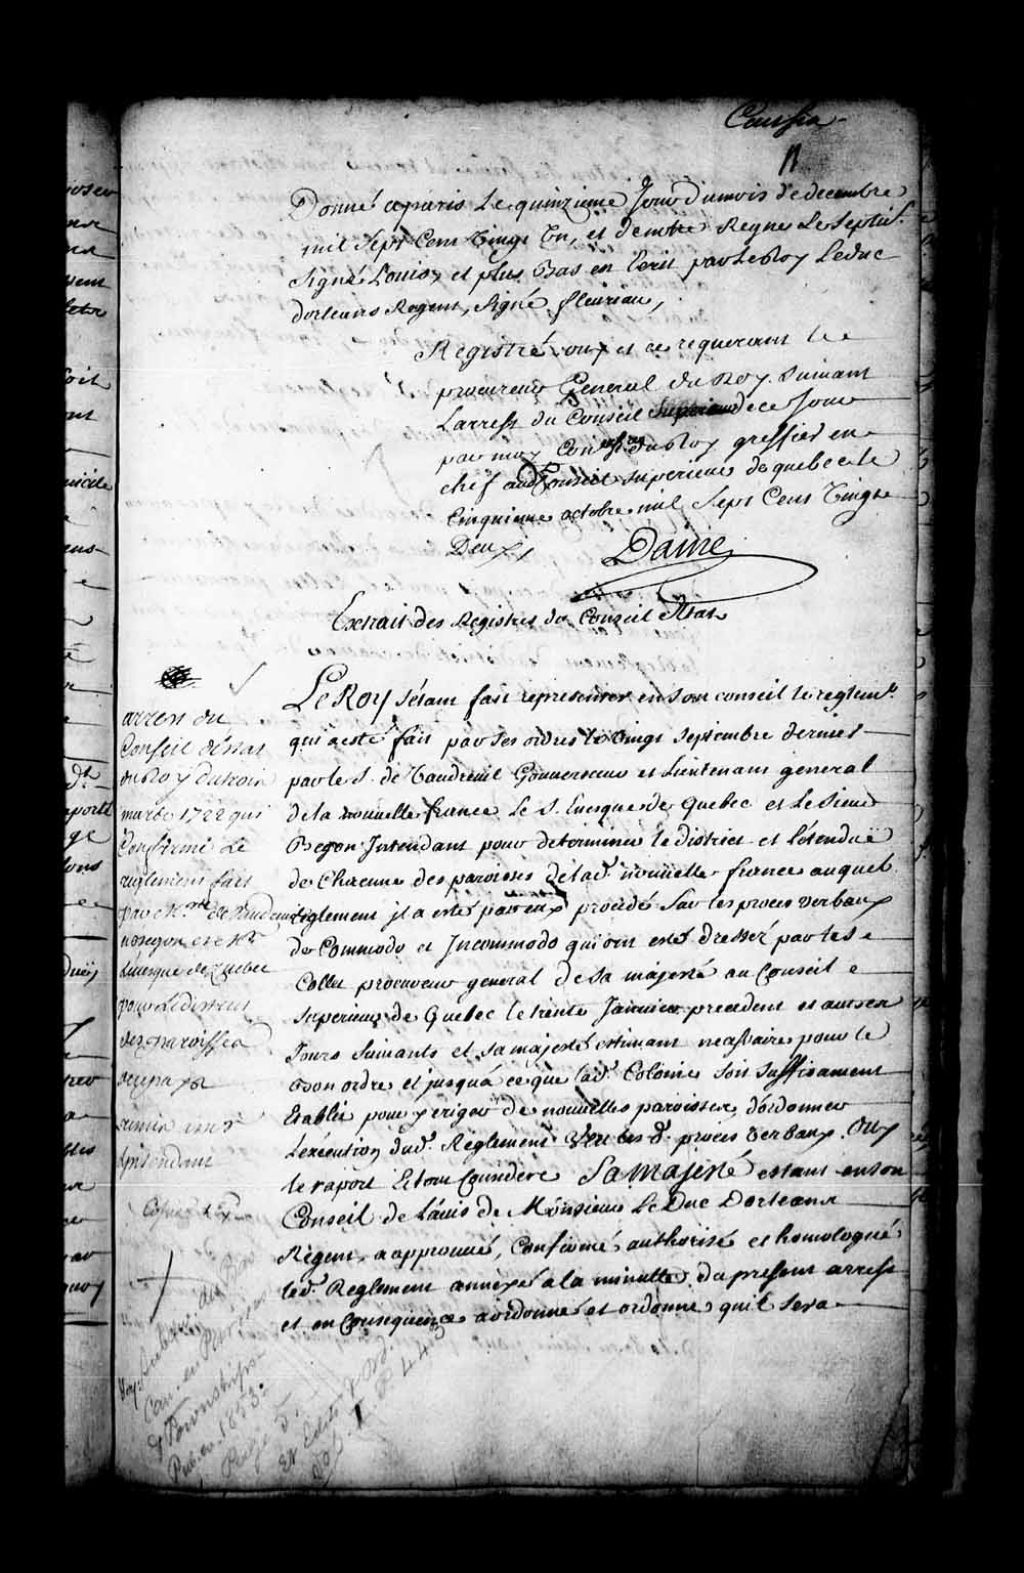 Donné aparis Le quinzieme Jour dumois de decembre
mil Sept Cens Vingt Un, et de notre Regne Le Septie.
Signé Louis, et plus Bas en Ecrit par Le Roy Le duc
dorleans Regent, Signé fleuriau,
Registré ouy et ce requerant Le
procureur General du Roy Suivant
Larrest du Conseil de ce Jour
par moy Conser du Roy greffier en
chef aud. Conseil Superieur de quebec le
Cinquieme octobre mil Sept Cens Vingt
Deux,
Daine
Extrait des Registres du Conseil d'Etat
arrest du
Conseil d'estat
du Roy du trois
mars 1722 qui
Confirme Le
reglement fait
par Mrs. de Vaudreuil
et Mr
Levesque de Quebec
pour Le district
des paroisses
de ce pays
Le Roy s'étant fait representer en son conseil le reglemt.
qui a esté fait par ses ordres le Vingt Septembre dernier
par le S. de Vaudreuil Gouverneur et Lieutenant general
de la nouvelle france Le S. Evesque de Quebec et Le Sieur
Begon Intendant pour determiner le district et l'etendüe
de Chacune des paroisses de lad. nouvelle france auquel
reglement il a esté par eux procédé Sur les proces verbaux
de Commodo et Incommodo qui ont estés dressez par le S.
Collet procureur general de Sa majesté au Conseil
Superieur de Quebec le trente Janvier precedent et autres
Jours Suivants et Sa majesté estimant necessaire pour le
bon ordre et jusqu'a ce que lad. Colonie Soit Suffisament
Etablie pour y eriger de nouvelles paroisses, d'ordonner
L'execution dud. Reglement Veu les d. proces Verbaux. Ouy
le raport Et tout Consideré Sa Majesté estant en son
Conseil de L'avis de Monsieur Le Duc Dorleans
Regent, a approuvé, Confirmé, authorisé et homologué
led. Reglement annexé a la minutte du present arrest
et en Consequence a ordonné et ordonne, qu'il Sera
Can. en
& Townships
Pub. en 1853.
Page 5.
Et Edits & Ord.
Vol. I. P. 443